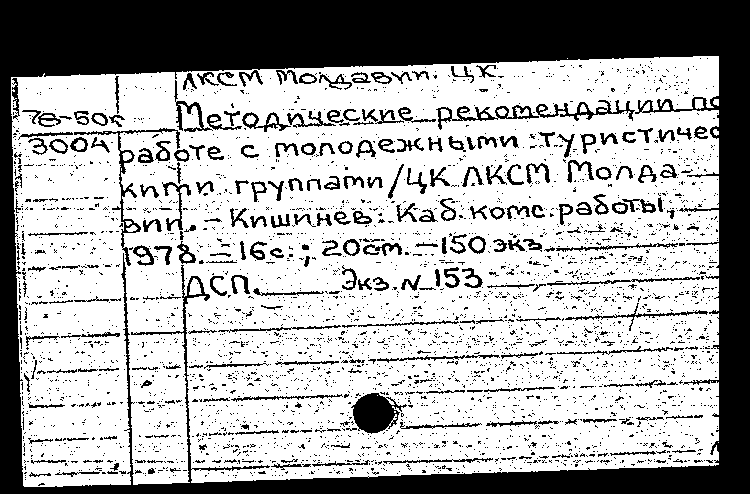 ЛКСМ Молдавии. ЦК.
78-50с Методические рекомендации по
3004 работе с молодежными туристичес
кими группами/ЦК ЛКСМ Молда-
вии. - Кишинев: Каб. комс. работы,
1978. - 16с.; 20см. - 150 экз.
ДСП. Экз. N 153